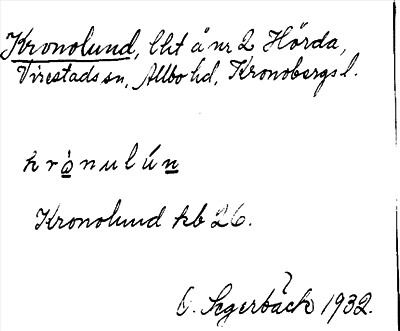 Kronolund, lht å nr 2 Hörda,
Virestads sn, Allbo hd, Kronobergs l.
krònulún
Kronolund kb 26.
C. Segerbäck 1932.